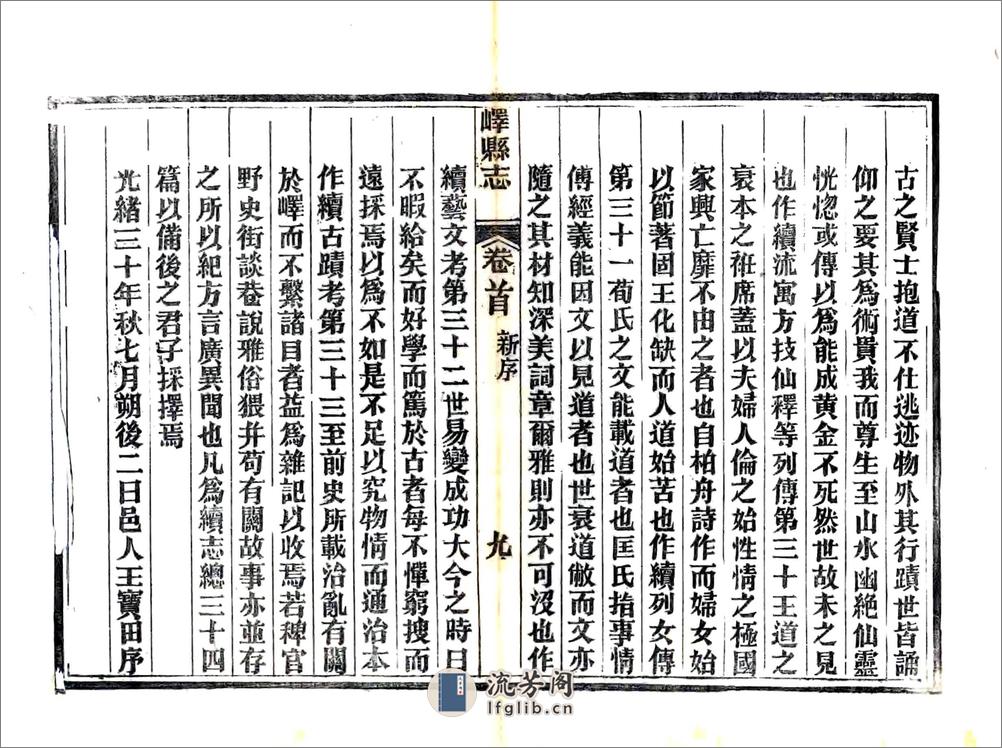 古之賢士抱道不仕逃迹物外其行蹟世皆誦
仰之要其為術貴我而尊生至山水幽絕仙靈
恍惚或傳以為能成黃金不死然世故未之見
也作續流寓方技仙釋等列傳第三十王道之
衰本之袵席蓋以夫婦人倫之始性情之極國
家興亡靡不由之者也自柏舟詩作而婦女始
以節著固王化缺而人道始苦也作續列女傳
第三十一荀氏之文能載道者也匡氏指事情
傳經義能因文以見道者也世衰道敝而文亦
隨之其材知深美詞章爾雅則亦不可沒也作
嶧縣志
卷首
新序
九
續藝文考第三十二世易變成功大今之時日
不暇給矣而好學而篤於古者每不憚窮搜而
遠採焉以為不如是不足以究物情而通治本
作續古蹟考第三十三至前史所載治亂有關
於嶧而不繫諸目者益為雜記以收焉若稗官
野史街談巷說雅俗猥并苟有關故事亦並存
之所以紀方言廣異聞也凡為續志總三十四
篇以備後之君子採擇焉
光緒三十年秋七月朔後二日邑人王寶田序
流芳閣
lfglib.cn